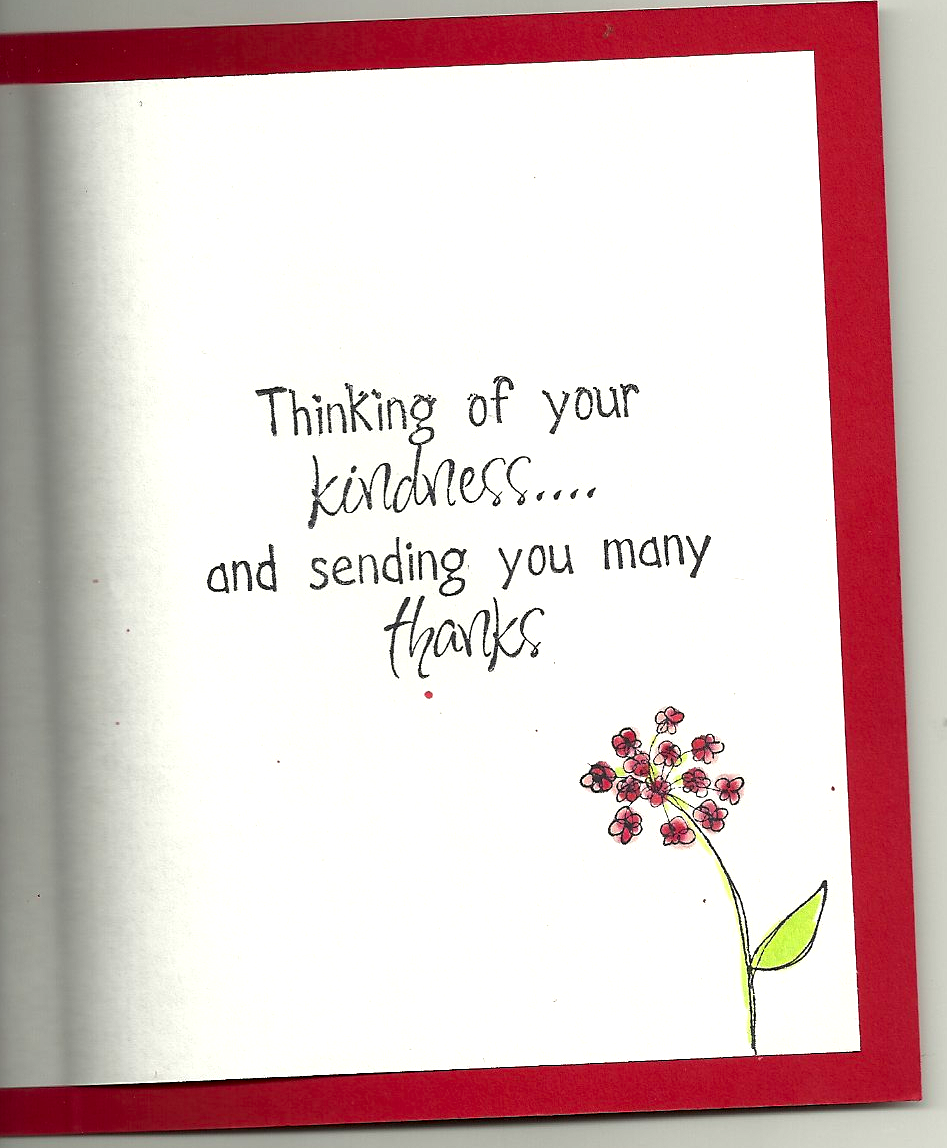 Thinking of your
kindness....
and sending you many
thanks